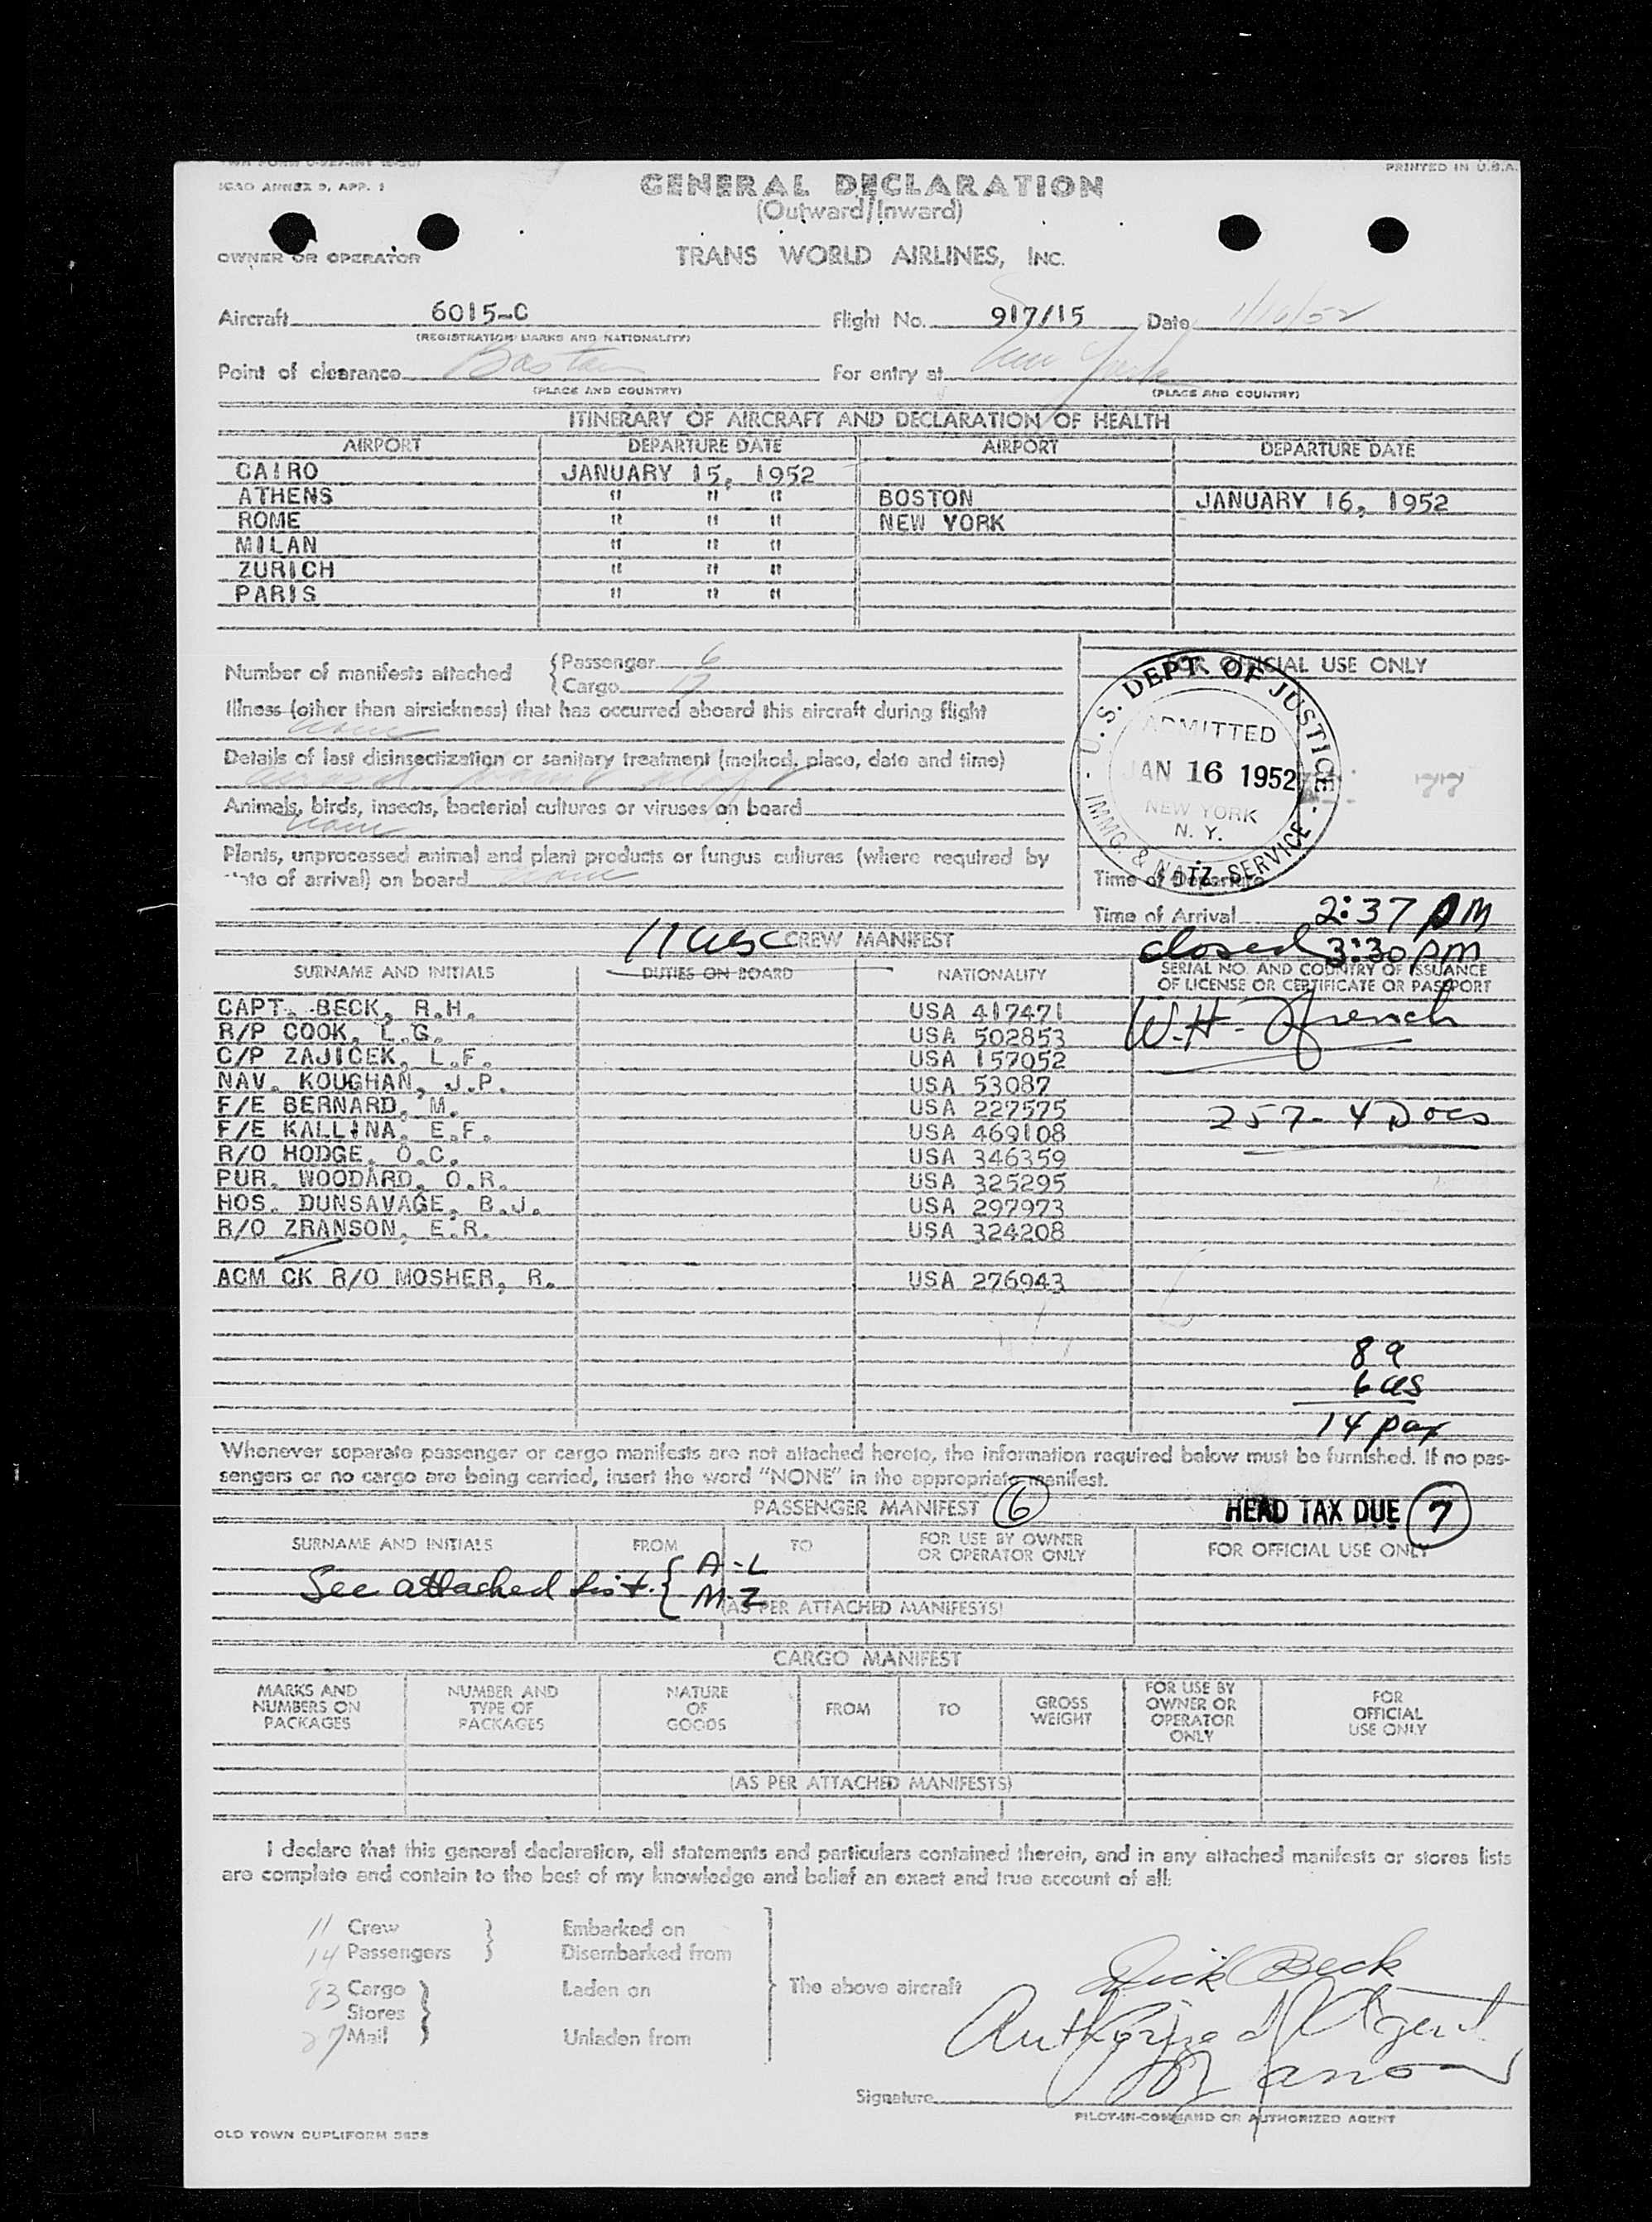 ICAO ANNEX 9, APP. 1
PRINTED IN U.S.A.
GENERAL DECLARATION
(Outward/Inward)
OWNER OR OPERATOR
TRANS WORLD AIRLINES, INC.
Aircraft 6015-C Flight No. 917/15 Date 1/16/52
(REGISTRATION MARKS AND NATIONALITY)
Point of clearance Boston For entry at New York
(PLACE AND COUNTRY) (PLACE AND COUNTRY)
ITINERARY OF AIRCRAFT AND DECLARATION OF HEALTH
AIRPORT DEPARTURE DATE AIRPORT DEPARTURE DATE
CAIRO JANUARY 15, 1952
ATHENS " " " BOSTON JANUARY 16, 1952
ROME " " " NEW YORK
MILAN " " "
ZURICH " " "
PARIS " " "
Number of manifests attached { Passenger 6
{ Cargo 17
FOR OFFICIAL USE ONLY
U.S. DEPT. OF JUSTICE
ADMITTED
JAN 16 1952
NEW YORK
N. Y.
IMMG. & NATZ. SERVICE
Illness (other than airsickness) that has occurred aboard this aircraft during flight
none
Details of last disinsectization or sanitary treatment (method, place, date and time)
Animals, birds, insects, bacterial cultures or viruses on board
none
Plants, unprocessed animal and plant products or fungus cultures (where required by
state of arrival) on board none
Time of Departure
Time of Arrival 2:37 PM
closed 3:30 pm
11 USC CREW MANIFEST
SURNAME AND INITIALS DUTIES ON BOARD NATIONALITY SERIAL NO. AND COUNTRY OF ISSUANCE
OF LICENSE OR CERTIFICATE OR PASSPORT
CAPT. BECK, R.H. USA 417471 W.H. French
R/P COOK, L.G. USA 502853
C/P ZAJICEK, L.F. USA 157052
NAV. KOUGHAN, J.P. USA 53087
F/E BERNARD, M. USA 227575 257-4 Docs
F/E KALLINA, E.F. USA 469108
R/O HODGE, O.C. USA 346359
PUR. WOODARD, O.R. USA 325295
HOS. DUNSAVAGE, B.J. USA 297973
R/O ZRANSON, E.R. USA 324208
ACM CK R/O MOSHER, R. USA 276943
8 a
6 us
14 pax
Whenever separate passenger or cargo manifests are not attached hereto, the information required below must be furnished. If no pas-
sengers or no cargo are being carried, insert the word "NONE" in the appropriate manifest.
PASSENGER MANIFEST 6 HEAD TAX DUE 7
SURNAME AND INITIALS FROM TO FOR USE BY OWNER
OR OPERATOR ONLY FOR OFFICIAL USE ONLY
See attached list. { A-L
{ M-Z
(AS PER ATTACHED MANIFESTS)
CARGO MANIFEST
MARKS AND
NUMBERS ON
PACKAGES
NUMBER AND
TYPE OF
PACKAGES
NATURE
OF
GOODS
FROM
TO
GROSS
WEIGHT
FOR USE BY
OWNER OR
OPERATOR
ONLY
FOR
OFFICIAL
USE ONLY
(AS PER ATTACHED MANIFESTS)
I declare that this general declaration, all statements and particulars contained therein, and in any attached manifests or stores lists
are complete and contain to the best of my knowledge and belief an exact and true account of all:
11 Crew } Embarked on
14 Passengers } Disembarked from
83 Cargo } Laden on The above aircraft Dick Beck
Stores
27 Mail } Unladen from Authorized Agent
Signature
PILOT-IN-COMMAND OR AUTHORIZED AGENT
OLD TOWN DUPLIFORM